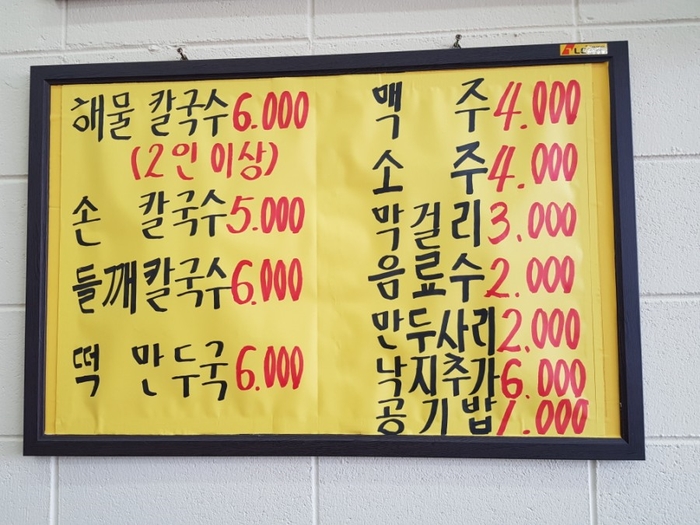 해물 칼국수 6.000
(2인 이상)
손 칼국수 5.000
들깨칼국수 6.000
떡 만두국 6.000
맥 주 4.000
소 주 4.000
막걸리 3.000
음료수 2.000
만두사리 2.000
낙지추가 6.000
공기밥 1.000